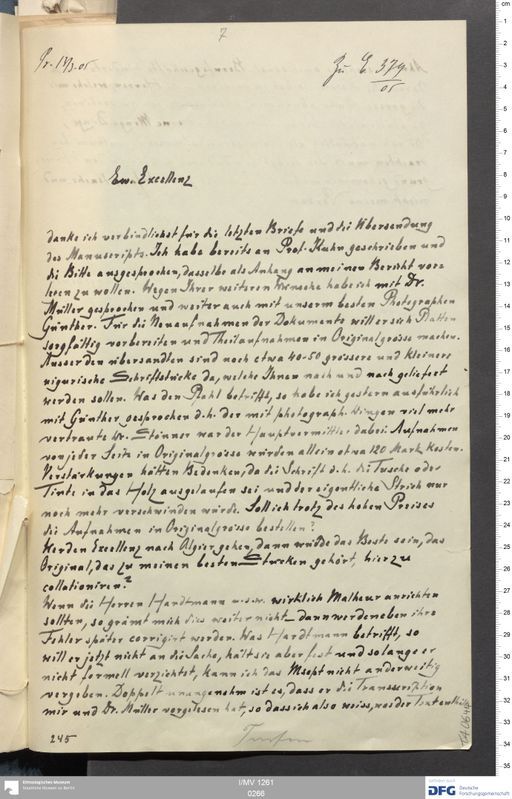 7
Pr. 13/3. 05
Zu E. 379/05
Ew. Excellenz
danke ich verbindlichst für die letzten Briefe und die Übersendung
des Manuscripts. Ich habe bereits an Prof. Kuhn geschrieben und
die Bitte ausgesprochen, dasselbe als Anhang an meinen Bericht vor-
lesen zu wollen. Wegen Ihrer weiteren Wünsche habe ich mit Dr.
Müller gesprochen und weiter auch mit unserm besten Photographen
Günther. Für die Neuaufnahmen der Dokumente will er sich Platten
sorgfältig vorbereiten und Theilaufnahmen in Originalgrösse machen.
Ausser den übersandten sind noch etwa 40-50 grössere und kleinere
uigurische Schriftstücke da, welche Ihnen nach und nach geliefert
werden sollen. Was den Pfahl betrifft, so habe ich gestern ausführlich
mit Günther gesprochen d.h. der mit photograph. Dingen viel mehr
vertraute Dr. Stönner war der Hauptvermittler dabei. Aufnahmen
von jeder Seite in Originalgrösse würden allein etwa 120 Mark kosten.
Verstärkungen hätten Bedenken, da die Schrift d.h. die Tusche oder
Tinte in das Holz ausgelaufen sei und der eigentliche Strich nur
noch mehr verschwinden würde. Soll ich trotz des hohen Preises
die Aufnahmen in Originalgrösse bestellen?
Werden Excellenz nach Algier gehen, dann würde das Beste sein, das
Original, das zu meinen besten Stücken gehört, hier zu
collationiren?
Wenn die Herren Hardtmann u.s.w. wirklich Malheur anrichten
sollten, so grämt mich dies weiter nicht – dann werden eben ihre
Fehler später corrigirt werden. Was Hardtmann betrifft, so
will er jetzt nicht an die Sache, hält sie aber fest und solange er
nicht formell verzichtet, kann ich das Mscpt nicht anderweitig
vergeben. Doppelt unangenehm ist es, dass er die Transscription
mir und Dr. Müller vorgelesen hat, so dass ich also weiss, was der Text enthält
245
TA 0646
Ethnologisches Museum
Staatliche Museen zu Berlin
I/MV 1261
0266
gefördert durch
DFG Deutsche
Forschungsgemeinschaft